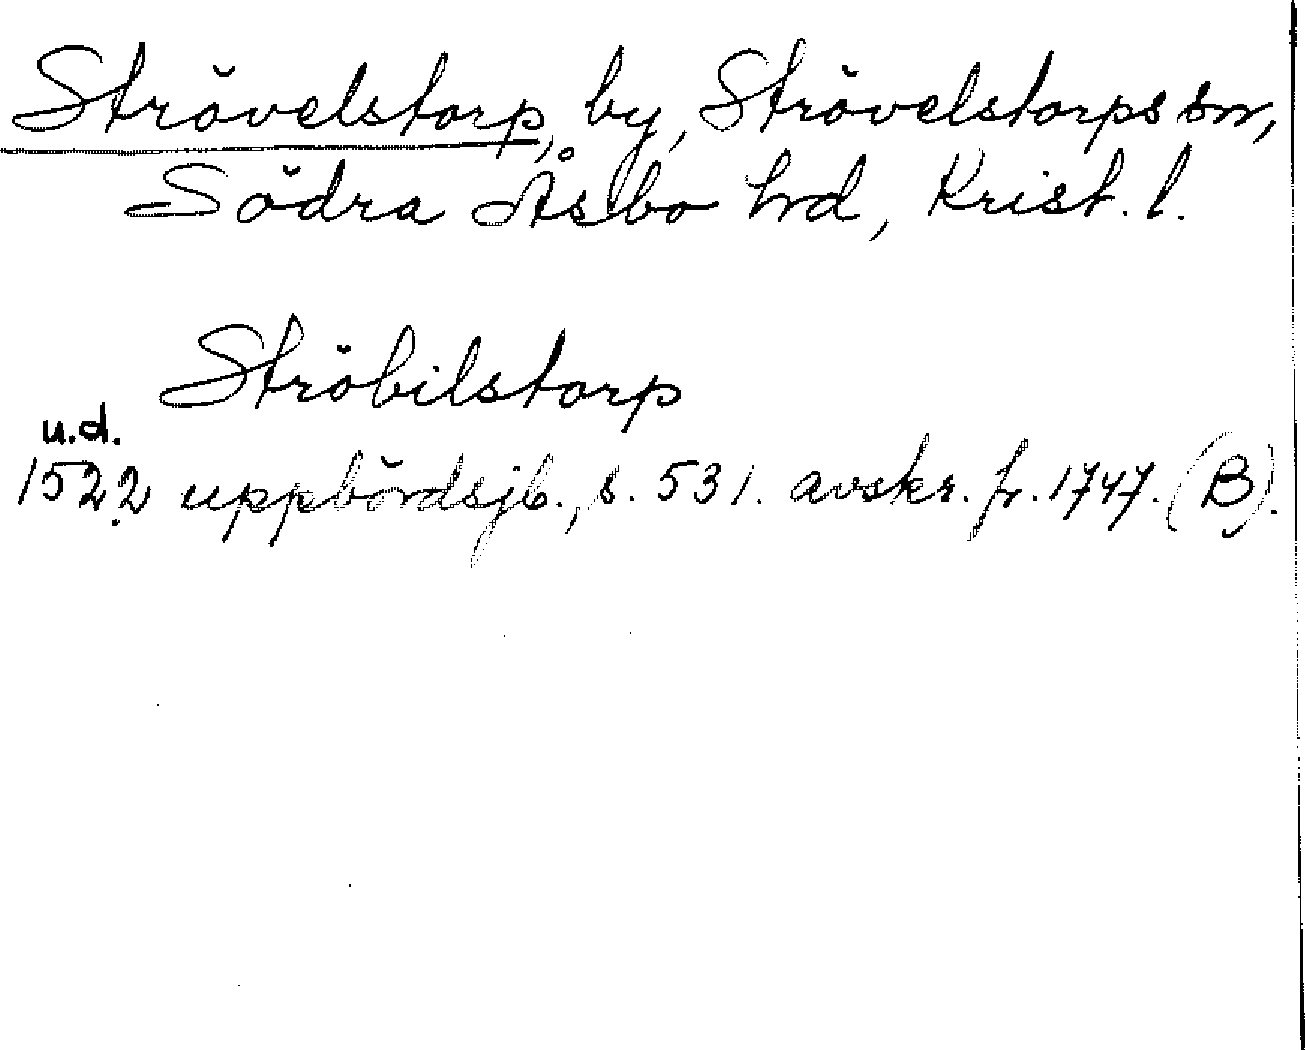 Strövelstorp, by, Strövelstorps sn,
Södra Åsbo hd, Krist. l.
Ströbilstorp
u.d.
1522 uppbördsjb., s. 531. avskr. fr. 1747. (B).